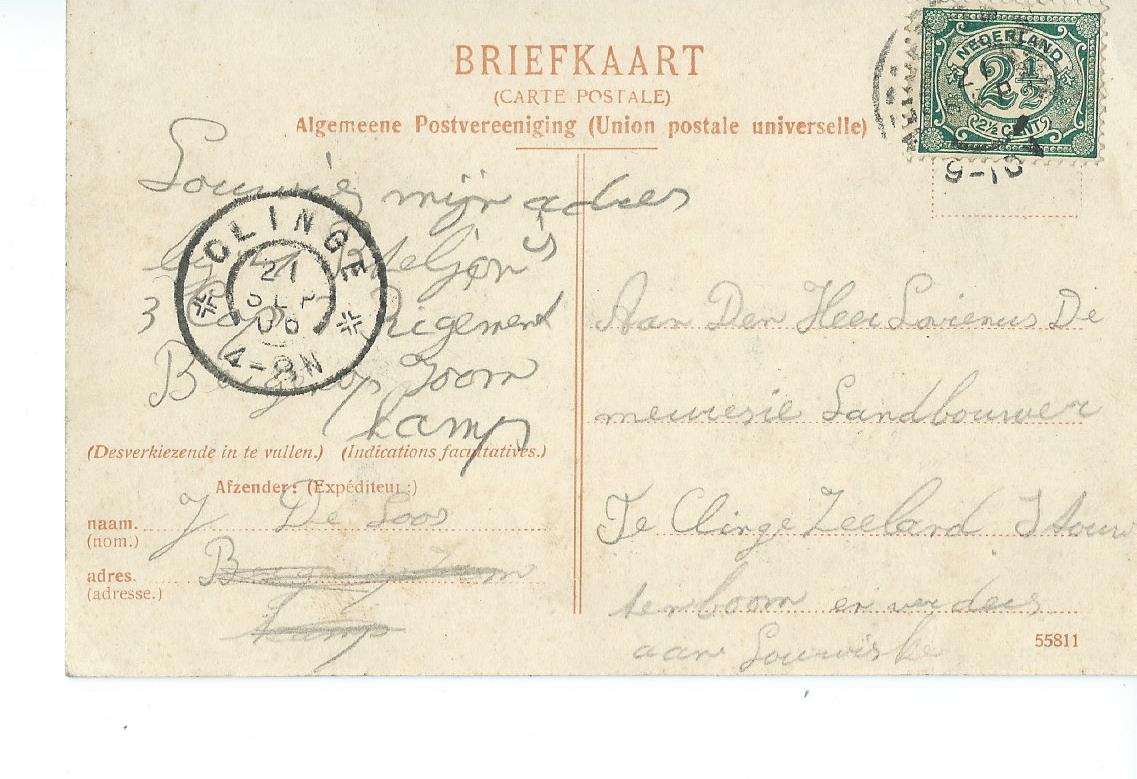 BRIEFKAART
(CARTE POSTALE)
Algemeene Postvereeniging (Union postale universelle)
NEDERLAND
2½
2½ CENT
mijn adres
is
3 Rigement
Zoom
kamp
CLINGE
21
SEP
06
4-8N
(Desverkiezende in te vullen.) (Indications facultatives.)
Afzender: (Expéditeur:)
naam. J De Loos
(nom.)
adres.
(adresse.)
kamp
Aan Den Heer Livienus De
meuresie Landbouwer
Te Clinge Zeeland
tenboom en verders
aan Louwiske
55811